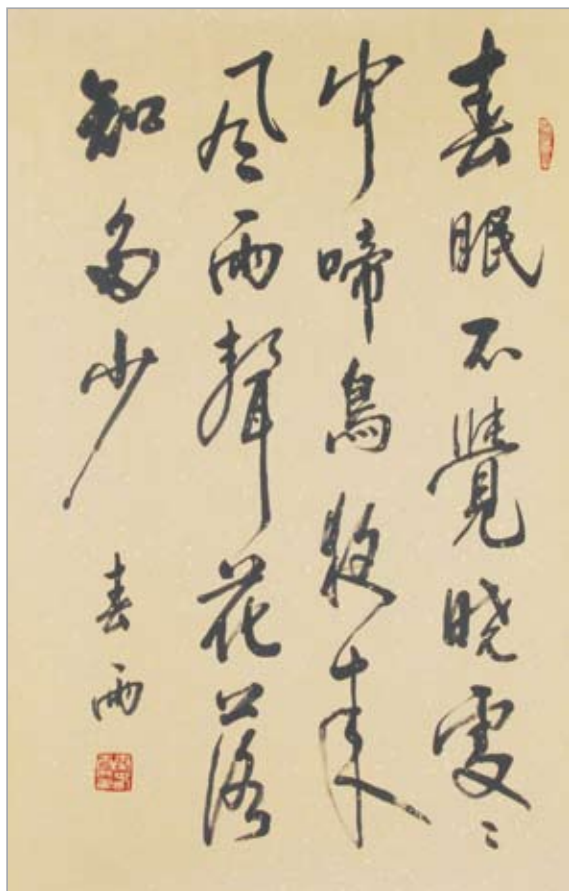 春眠不覺曉處々
聞啼鳥夜來
風雨聲花落
知多少
春雨